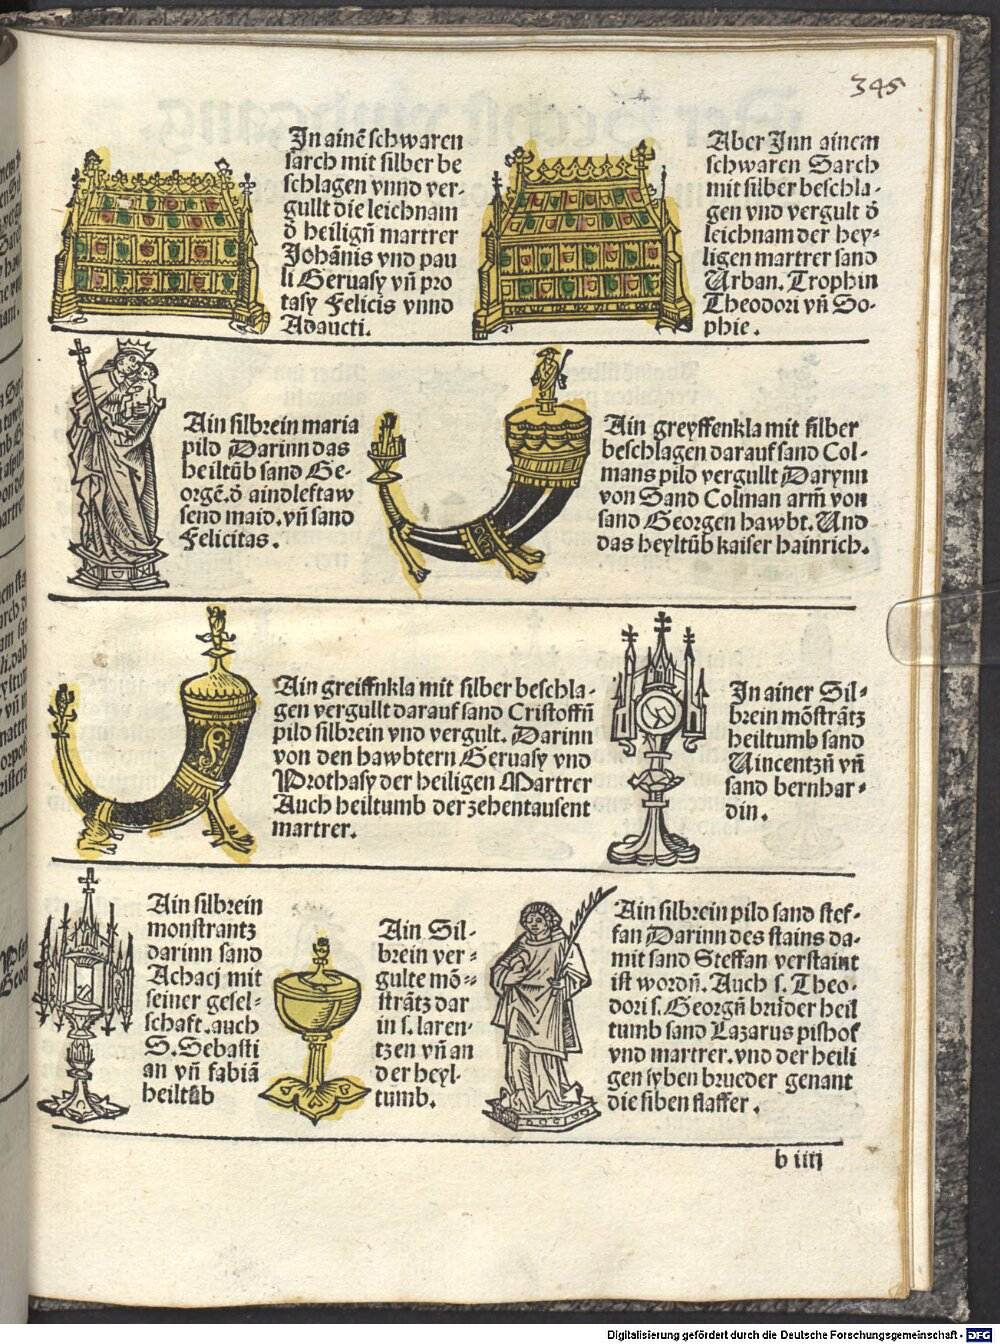 345
In ainẽ schwaren
sarch mit silber be
schlagen vnnd ver-
gullt die leichnam
ð heiligñ martrer
Johãnis vnd pau
li Geruasy vñ pro
tasy Felicis vnnd
Adaucti.
Aber Inn ainem
schwaren Sarch
mit silber beschla-
gen vnd vergult ð
leichnam der hey-
ligen martrer sand
Urban. Trophin
Theodori vñ So-
phie.
Ain silbrein maria
pild Darinn das
heiltũb sand Ge-
orgẽ. ð aindleftaw
send maid. vñ sand
Felicitas.
Ain greyffenkla mit silber
beschlagen darauf sand Col-
mans pild vergullt Darynn
von Sand Colman arm̃ von
sand Georgen hawbt. Und
das heyltũb kaiser hainrich.
Ain greiffnkla mit silber beschla-
gen vergullt darauf sand Cristoffñ
pild silbrein vnd vergult. Darinn
von den hawbtern Geruasy vnd
Prothasy der heiligen Martrer
Auch heiltumb der zehentausent
martrer.
In ainer Sil-
brein mõstrãtz
heiltumb sand
Uincentzñ vñ
sand bernhar-
din.
Ain silbrein
monstrantz
darinn sand
Achacj mit
seiner gesel-
schaft. auch
S. Sebasti
an vñ fabiã
heiltũb
Ain Sil-
brein ver-
gulte mõ-
strãtz dar
in s. laren-
tzen vñ an
der heyl-
tumb.
Ain silbrein pild sand stef-
fan Darinn des stains da-
mit sand Steffan verstaint
ist wordñ. Auch s. Theo-
dori s. Georgñ brůder heil
tumb sand Lazarus pischof
vnd martrer. vnd der heili
gen syben brueder genant
die siben slaffer.
b iiij
Digitalisierung gefördert durch die Deutsche Forschungsgemeinschaft - DFG